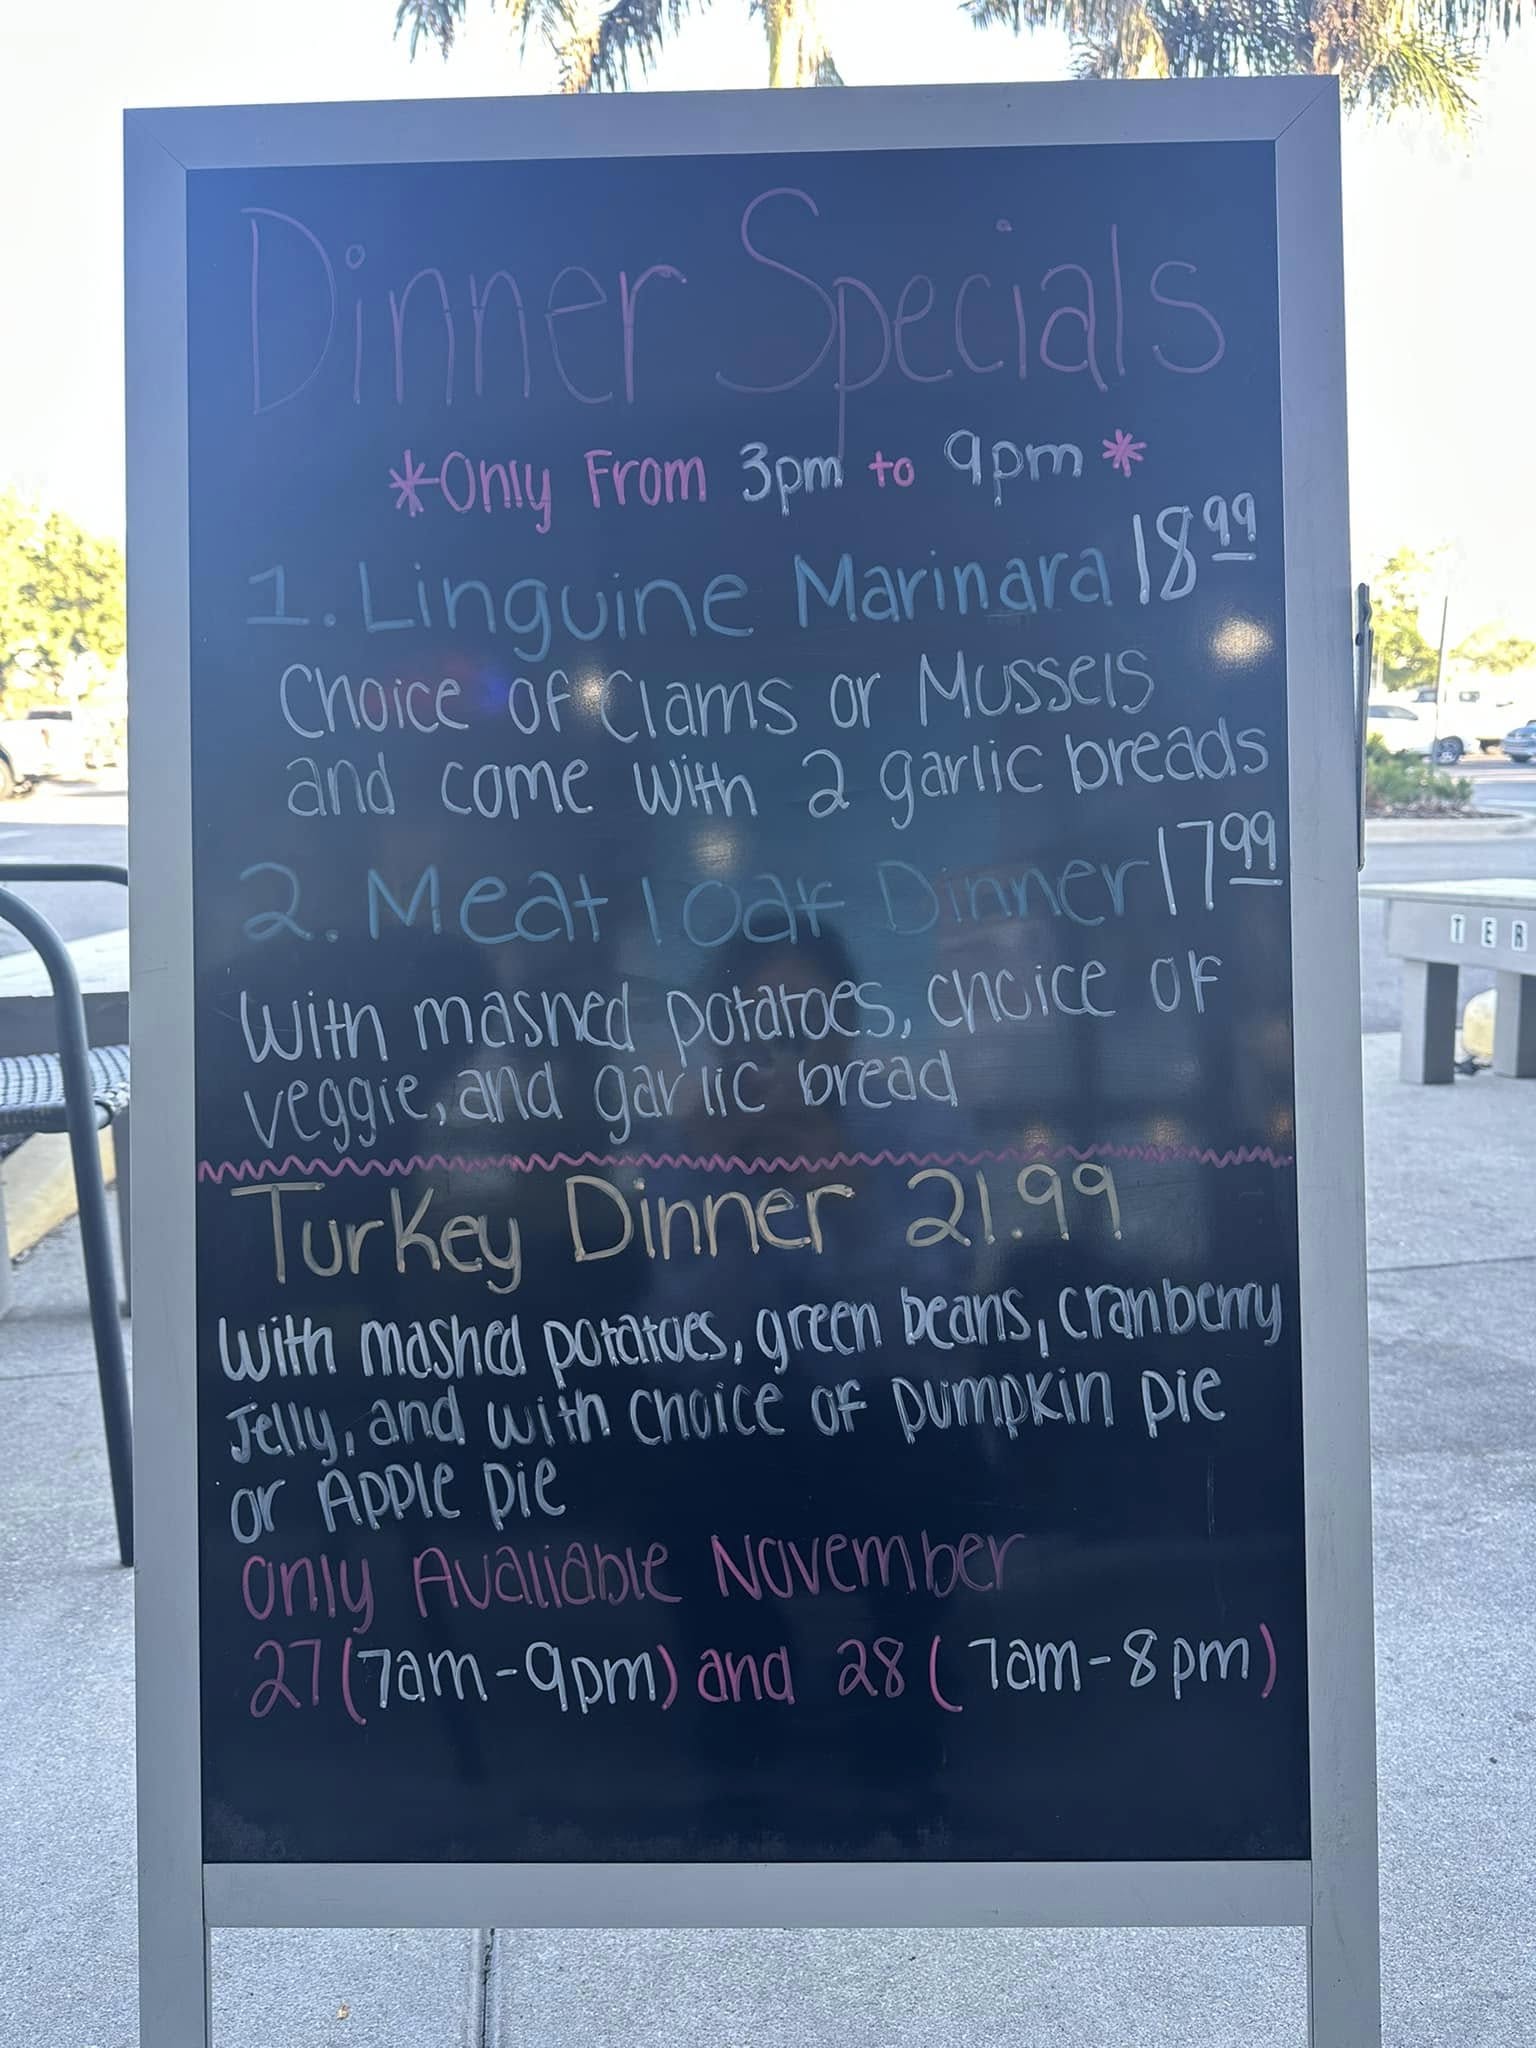 Dinner Specials
*Only From 3pm to 9pm*
1. Linguine Marinara 18.99
Choice of Clams or Mussels
and come with 2 garlic breads
2. Meat loaf Dinner 17.99
With mashed potatoes, choice of
veggie, and garlic bread
Turkey Dinner 21.99
With mashed potatoes, green beans, cranberry
Jelly, and with choice of pumpkin pie
or Apple pie
Only Avaliable November
27 (7am-9pm) and 28 (7am-8pm)
TER